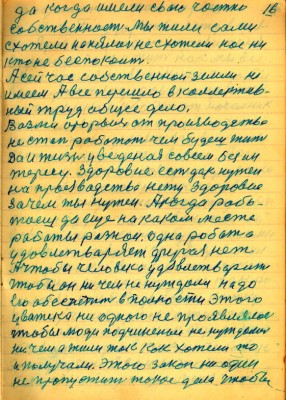 да когда имели свою частну 16
собственност мы жили сами
схотели поехали не схотели нас ни
кто не беспокоит.
А сей час собственной земли не
имеем А все перешло в коллектив-
ный труд общее дело.
Возми оторвись от производства
не стал работат чем будеш жить
Да и жизнь уведеная совсем без ин
тересу. Здоровие ест дак нужен
на производстве нету здоровие
зачем ты нужен. А когда рабо-
таеш да еще на каком месте
работы разной. одна работа
удовлетваряет другая нет
А чтобы человека удовлетварить
чтобы он ни чем не нуждался надо
его обеспетит в полности этого
у ни одного не проявлялос
чтобы люди подчиненые не нуждалис
ни чем а жили так как хотели то
и получали. Этого закон ни один
не пропустит такое дела чтобы